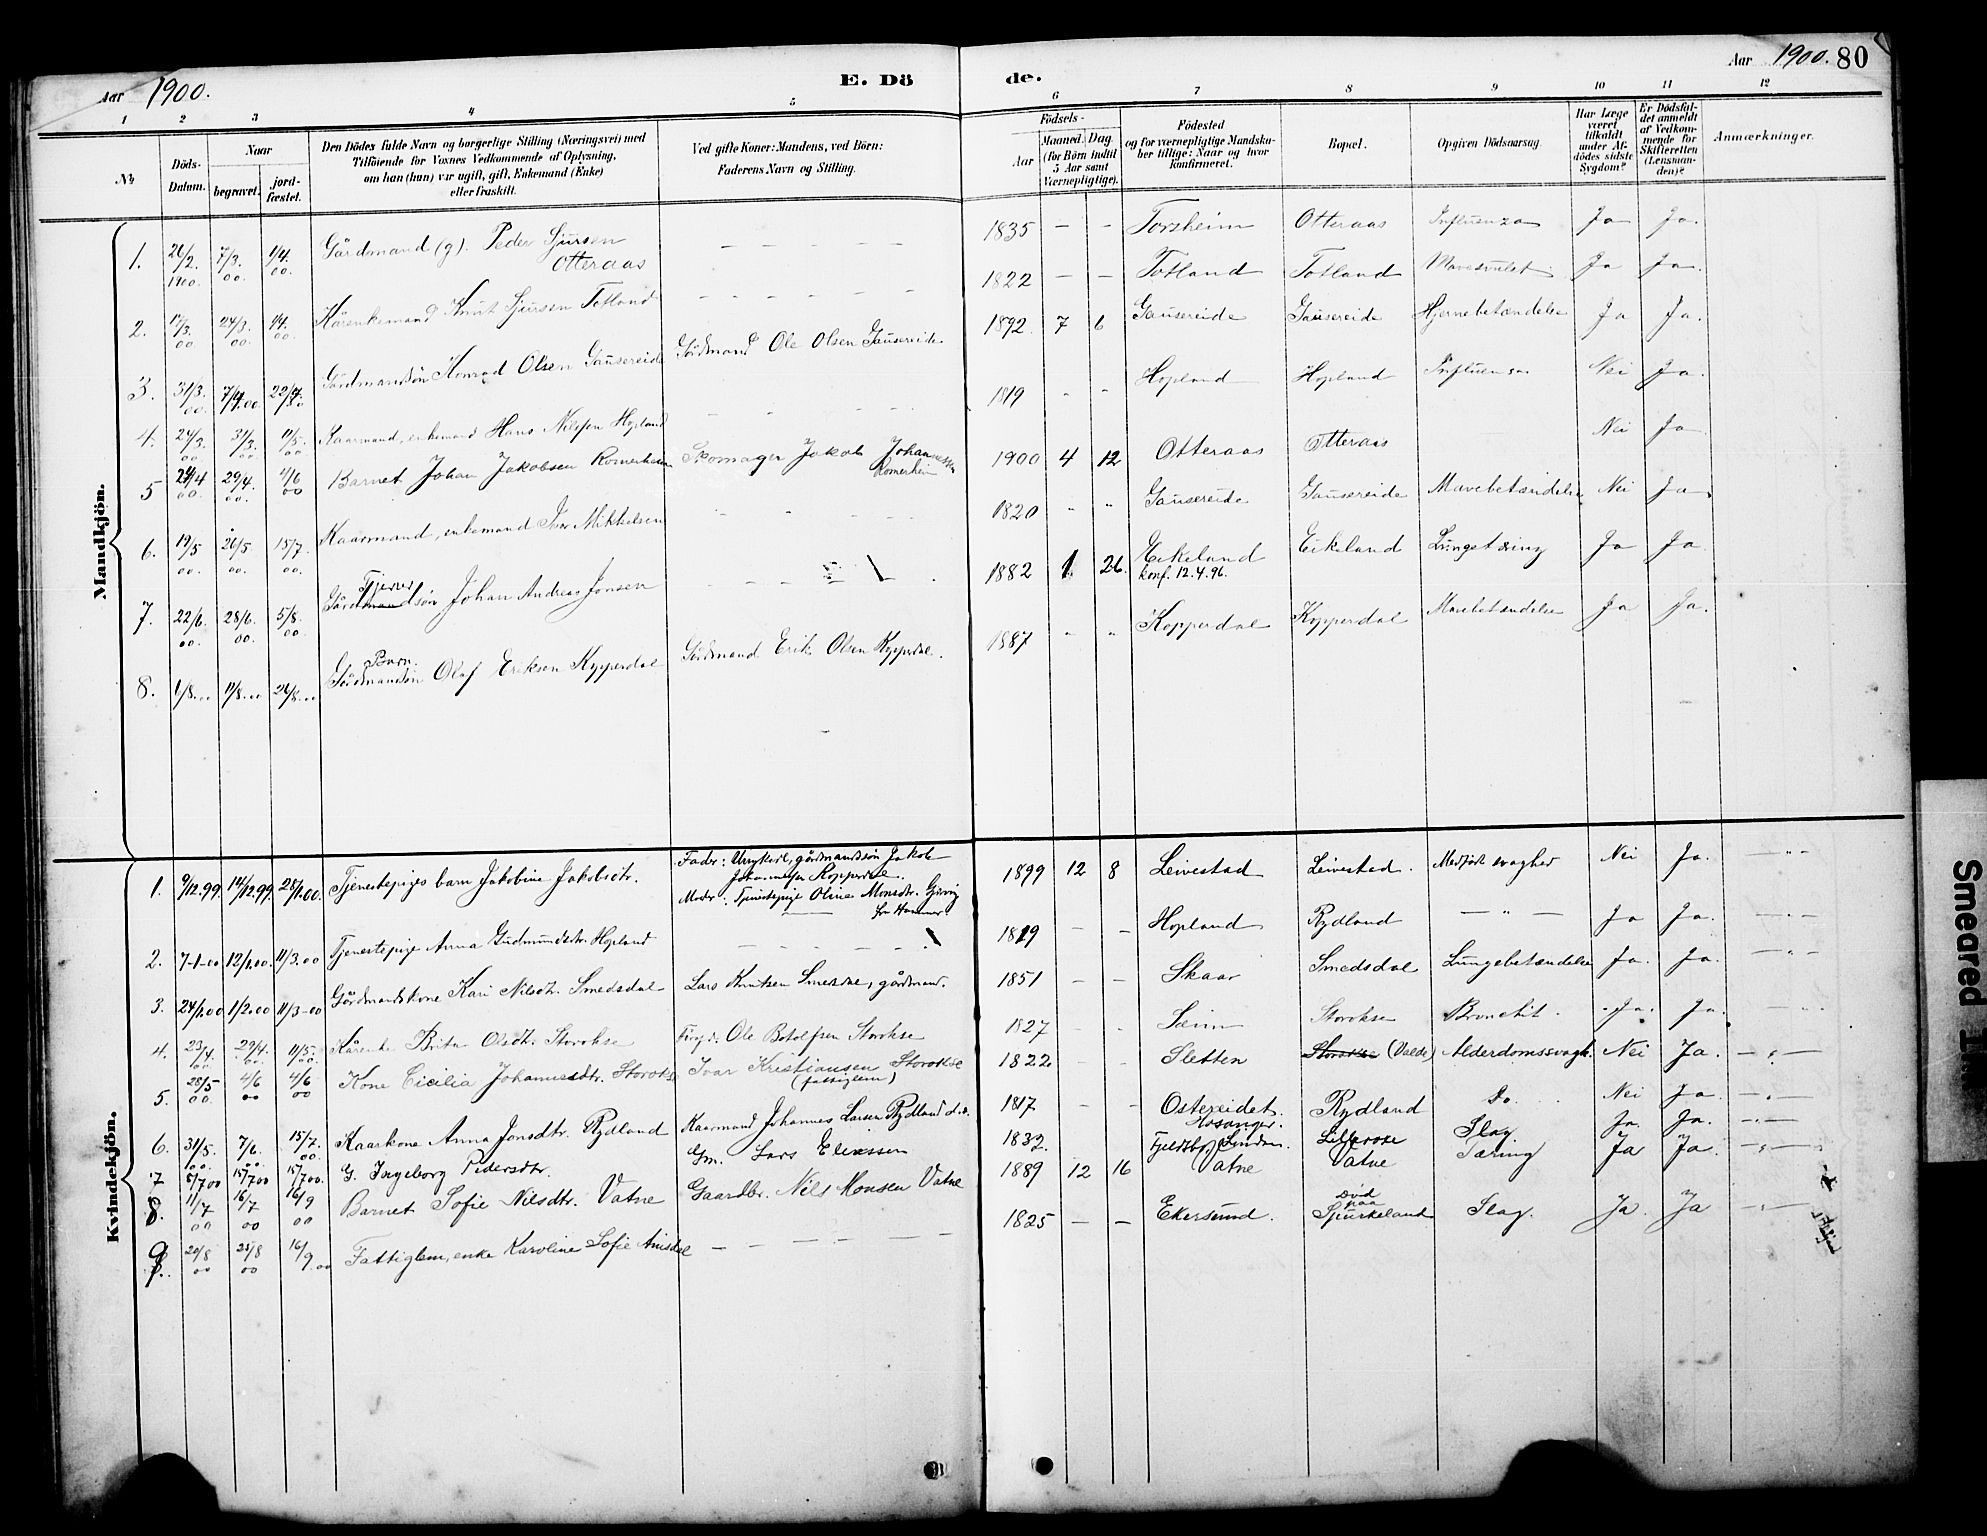 Aar 1900.
E. Dö
de.
Aar 1900. 80
1 2 3 4 5 6 7 8 9 10 11 12
№ Döds-Datum. Naar begravet. jord-fæstet. Den Dödes fulde Navn og borgerlige Stilling (Næringsvei) med Tilföiende for Voxnes Vedkommende af Oplysning, om han (hun) var ugift, gift, Enkemand (Enke) eller fraskilt. Ved gifte Koner: Mandens, ved Börn: Faderens Navn og Stilling. Födsels- Aar Maaned. Dag. (for Börn indtil 5 Aar samt Værnepligtige). Födested og for værnepligtige Mandskaber tillige: Naar og hvor konfirmeret. Bopæl. Opgiven Dödsaarsag. Har Læge været tilkaldt under Afdödes sidste Sygdom? Er Dödsfaldet anmeldt af Vedkommende for Skifteretten (Lensmanden)? Anmærkninger.
Mandkjön.
1. 26/2. 1900. 7/3. 00 1/4. 00. Gårdmand (g). Peder Sjursen Otteraas — — — — — 1835 — — Torsheim Otteraas Influenza Ja Ja.
2. 17/3. 00 24/3. 00. 1/4. 00. Kårenkemand Knut Sjursen Totland — — — — — 1822 — — Totland Totland Mavesvulst Ja Ja.
3. 31/3. 00. 7/4.00 22/4. 00 Gårdmandsön Konrad Olsen Gausereide Gårdmand Ole Olsen Gausereide 1892 7 6 Gausereide Gausereide Hjernebetændelse Ja Ja.
4. 24/3. 00 31/3. 00 11/5. 00 Kaarmand, enkemand Hans Nilssen Hopland 1819 - - Hopland Hopland Influensa Nei Ja.
5 24/4 00. 29/4. 00. 4/6 00 Barnet Johan Jakobsen Romerheim Skomager Jakob Johannessen Romerheim 1900 4 12 Otteraas Otteraas Nei Ja
6. 19/5 00. 26/5 00. 15/7. 00. Kaarmand, enkemand Iver Mikkelsen 1820 " " Gausereide Gausereide Mavebetændelse Nei Ja
7. 22/6. 00. 28/6. 00. 5/8. 00. Tjener Gårdmandsön Johan Andreas Jonsen 1882 1. 26. Eikeland konf. 12.4.96. Eikeland Lungetæring Ja Ja
8. 1/8.00 11/8.00 26/8.00 Barn. Gårdmandsön Olaf Eriksen Kopperdal Gårdmand Erik Olsen Kopperdal. 1887 " " Kopperdal Kopperdal Mavebetændelse Ja Ja.
Kvindekjön.
1. 9/12.99. 14/12.99. 28/1.00. Tjenestepiges barn Jakobine Jakobsdtr. Fader: Ungkarl, gårdmandssön Jakob Johannessen Kopperdal. Moder: Tjenestepige Oline Monsdtr. Gjervig fra Hammer. 1899 12 8 Leivestad Leivestad. Medfödt svaghed Nei Ja. — " —
2. 7-1-00 12/1.00. 11/3.00 Tjenestepige Anna Gudmundsdtr. Hopland — — — — — 1819 — — Hopland Rydland — " — Ja Ja. — " —
3. 24/1.00 1/2.00 11/3-00 Gårdmandskone Kari Nilsdtr. Smedsdal Lars Knutsen Smedsdal, gårdmand. 1851 - — Skaar Smedsdal Lungebetændelse Ja. Ja. — " —
4. 23/4. 00 29/4. 00. 11/5. 00 Kårenke Brita Olsdtr. Storokse Ole Botolfsen Storokse 1827 - - Sæim Storokse Bronchit. Ja. Ja. " —
5. 28/5 00. 4/6 00 4/6 00 Kone Cicilia Johannesdtr. Storokse Ivar Kristiansen Storokse (fattiglem) 1822 - - Sletten Storokse (Valde) Alderdomssvagh. Nei Ja. — " —
6. 31/5. 00. 7/6. 00. 15/7. 00. Kaarkone Anna Jonsdtr. Rydland Kaarmand Johannes Larsen Rydland 1817 - - Ostereidet. Hosanger. Rydland Do. Nei Ja. — " —
7 8/7 00 15/7 00 15/7 00. G. Ingeborg Pedersdtr. Gm. Lars Eliassen 1832. Fjeldsb. Lindaas. Lilleaase Slag. Ja. Ja. — " —
8. 11/7 00 16/7 00 16/9 00 Barnet Sofie Nilsdtr. Vatne Gaardbr. Nils Monsen Vatne 1889 12 16 Vatne Vatne Tæring Ja Ja. — " —
9. 20/8 00 25/8 00 16/9.00 Fattiglem, enke Karoline Sofie Amsdal — — — — — 1825 — — Ekersund. Död paa Spurkeland Slag. Ja. Ja — " —
Smeared